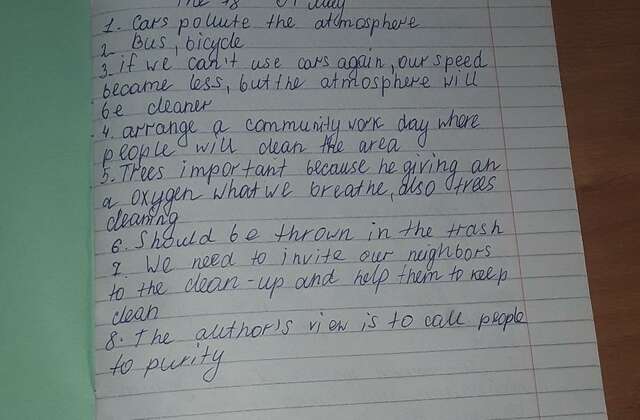 The 18 of May
1. Cars pollute the atmosphere
2 Bus, bicycle
3. if we can't use cars again, our speed
became less, but the atmosphere will
be cleaner
4. arrange a community work day where
people will clean the area
5. Trees important because he giving an
a oxygen what we breathe, also trees
cleaning
6. Should be thrown in the trash
7. We need to invite our neighbors
to the clean-up and help them to keep
clean
8. The author's view is to call people
to purity